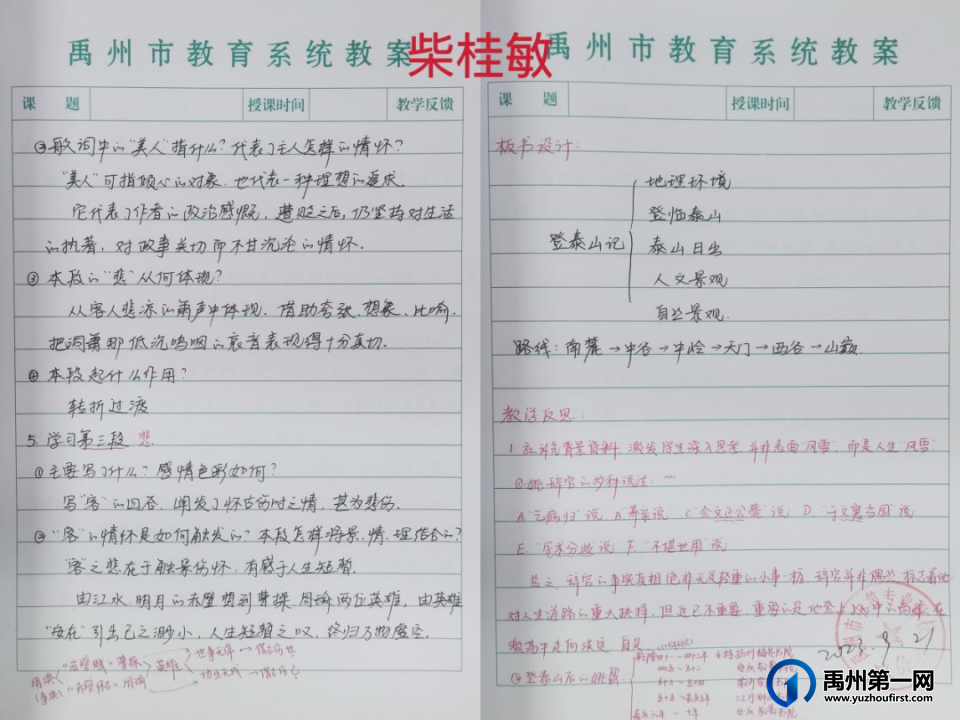 禹州市教育系统教案
柴桂敏
课 题 授课时间 教学反馈
②歌词中的"美人"指什么?代表了主人怎样的情怀?
"美人"可指倾心的对象,也代表一种理想的追求.
它代表了作者的政治感慨,遭贬之后,仍坚持对生活
的执着,对故事关切而不甘沉沦的情怀.
③本段的"悲"从何体现?
从客人悲凉的箫声中体现,借助夸张、想象、比喻,
把洞箫那低沉呜咽的哀音表现得十分真切.
④本段起什么作用?
转折过渡
5. 学习第三段 悲
①主要写了什么?感情色彩如何?
写"客"的回答,阐发了怀古伤时之情,甚为悲伤.
②"客"的情怀是如何触发的?本段怎样将景、情、理结合的?
"客"之悲在于触景伤怀,有感于人生短暂.
由江水、明月的赤壁想到曹操、周瑜两位英雄,由英雄
"安在"引出己之渺小,人生短暂之叹,终归万物虚空.
英雄
禹州市教育系统教案
课 题 授课时间 教学反馈
板书设计:
登泰山记
地理环境
登临泰山
泰山日出
人文景观
自然景观.
路线:南麓→中谷→中岭→天门→西谷→山巅.
教学反思:
1.补充背景资料 激发学生深入思考 并非表面"风雪",而是人生"风雪".
①姚辞官的多种说法:
A."乞病归"说 B."养亲"说 D."于文襄当国"说
E."学术分歧"说 F."不堪世用"说
对人生道路的重大抉择,但这已不重要,重要的是他登上
2023.9.21
②登泰山后的姚鼐
禹州第一网
www.yuzhoufirst.com